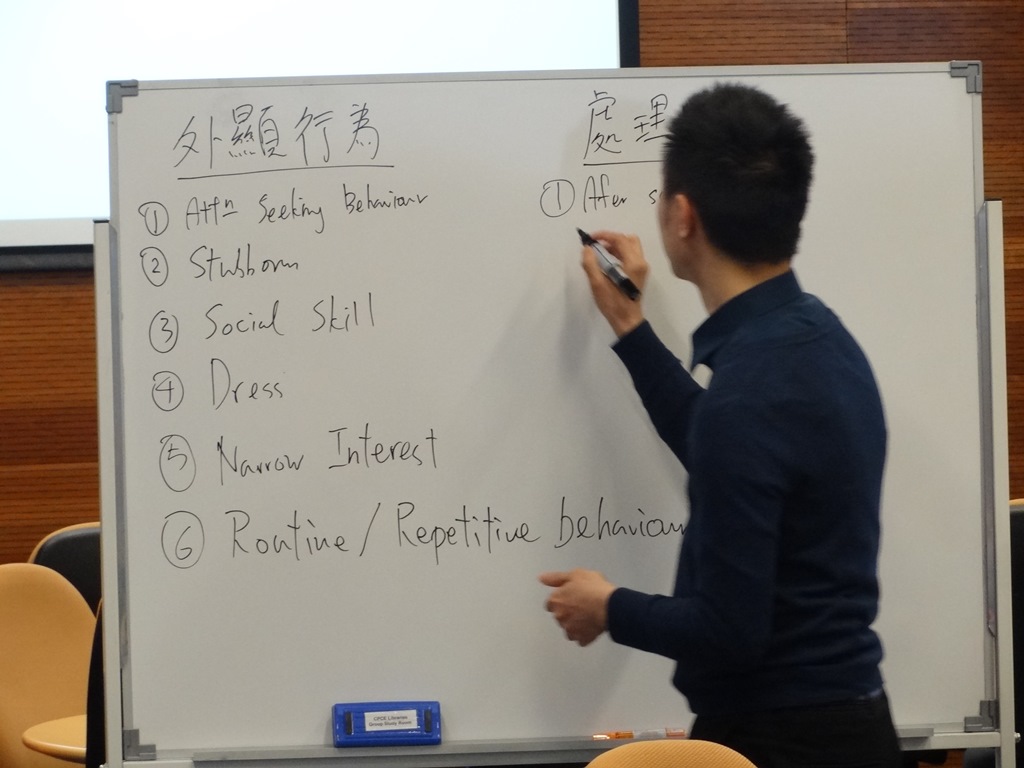 外顯行為
① Attn Seeking Behaviour
② Stubborn
③ Social Skill
④ Dress
⑤ Narrow Interest
⑥ Routine / Repetitive behaviour
處理
① After
CPCE Libraries
Group Study Room